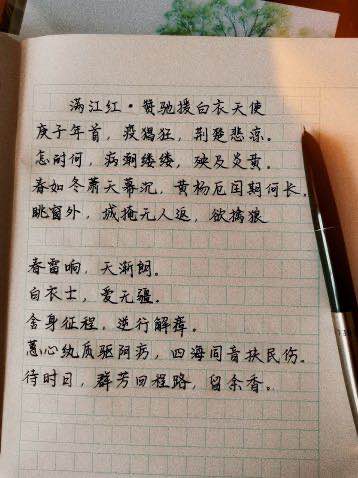 满江红·赞驰援白衣天使
庚子年首,疫猖狂,荆楚悲凉。
怎耐何,病潮缕缕,殃及炎黄。
春如冬萧天幕沉,黄杨厄闰期何长。
眺窗外,城掩无人返,欲擒狼
春雷响,天渐朗。
白衣士,爱无疆。
舍身征程,逆行解瘴。
蕙心纨质驱阴疠,四海同音扶民伤。
待时日,群芳回程路,留余香。